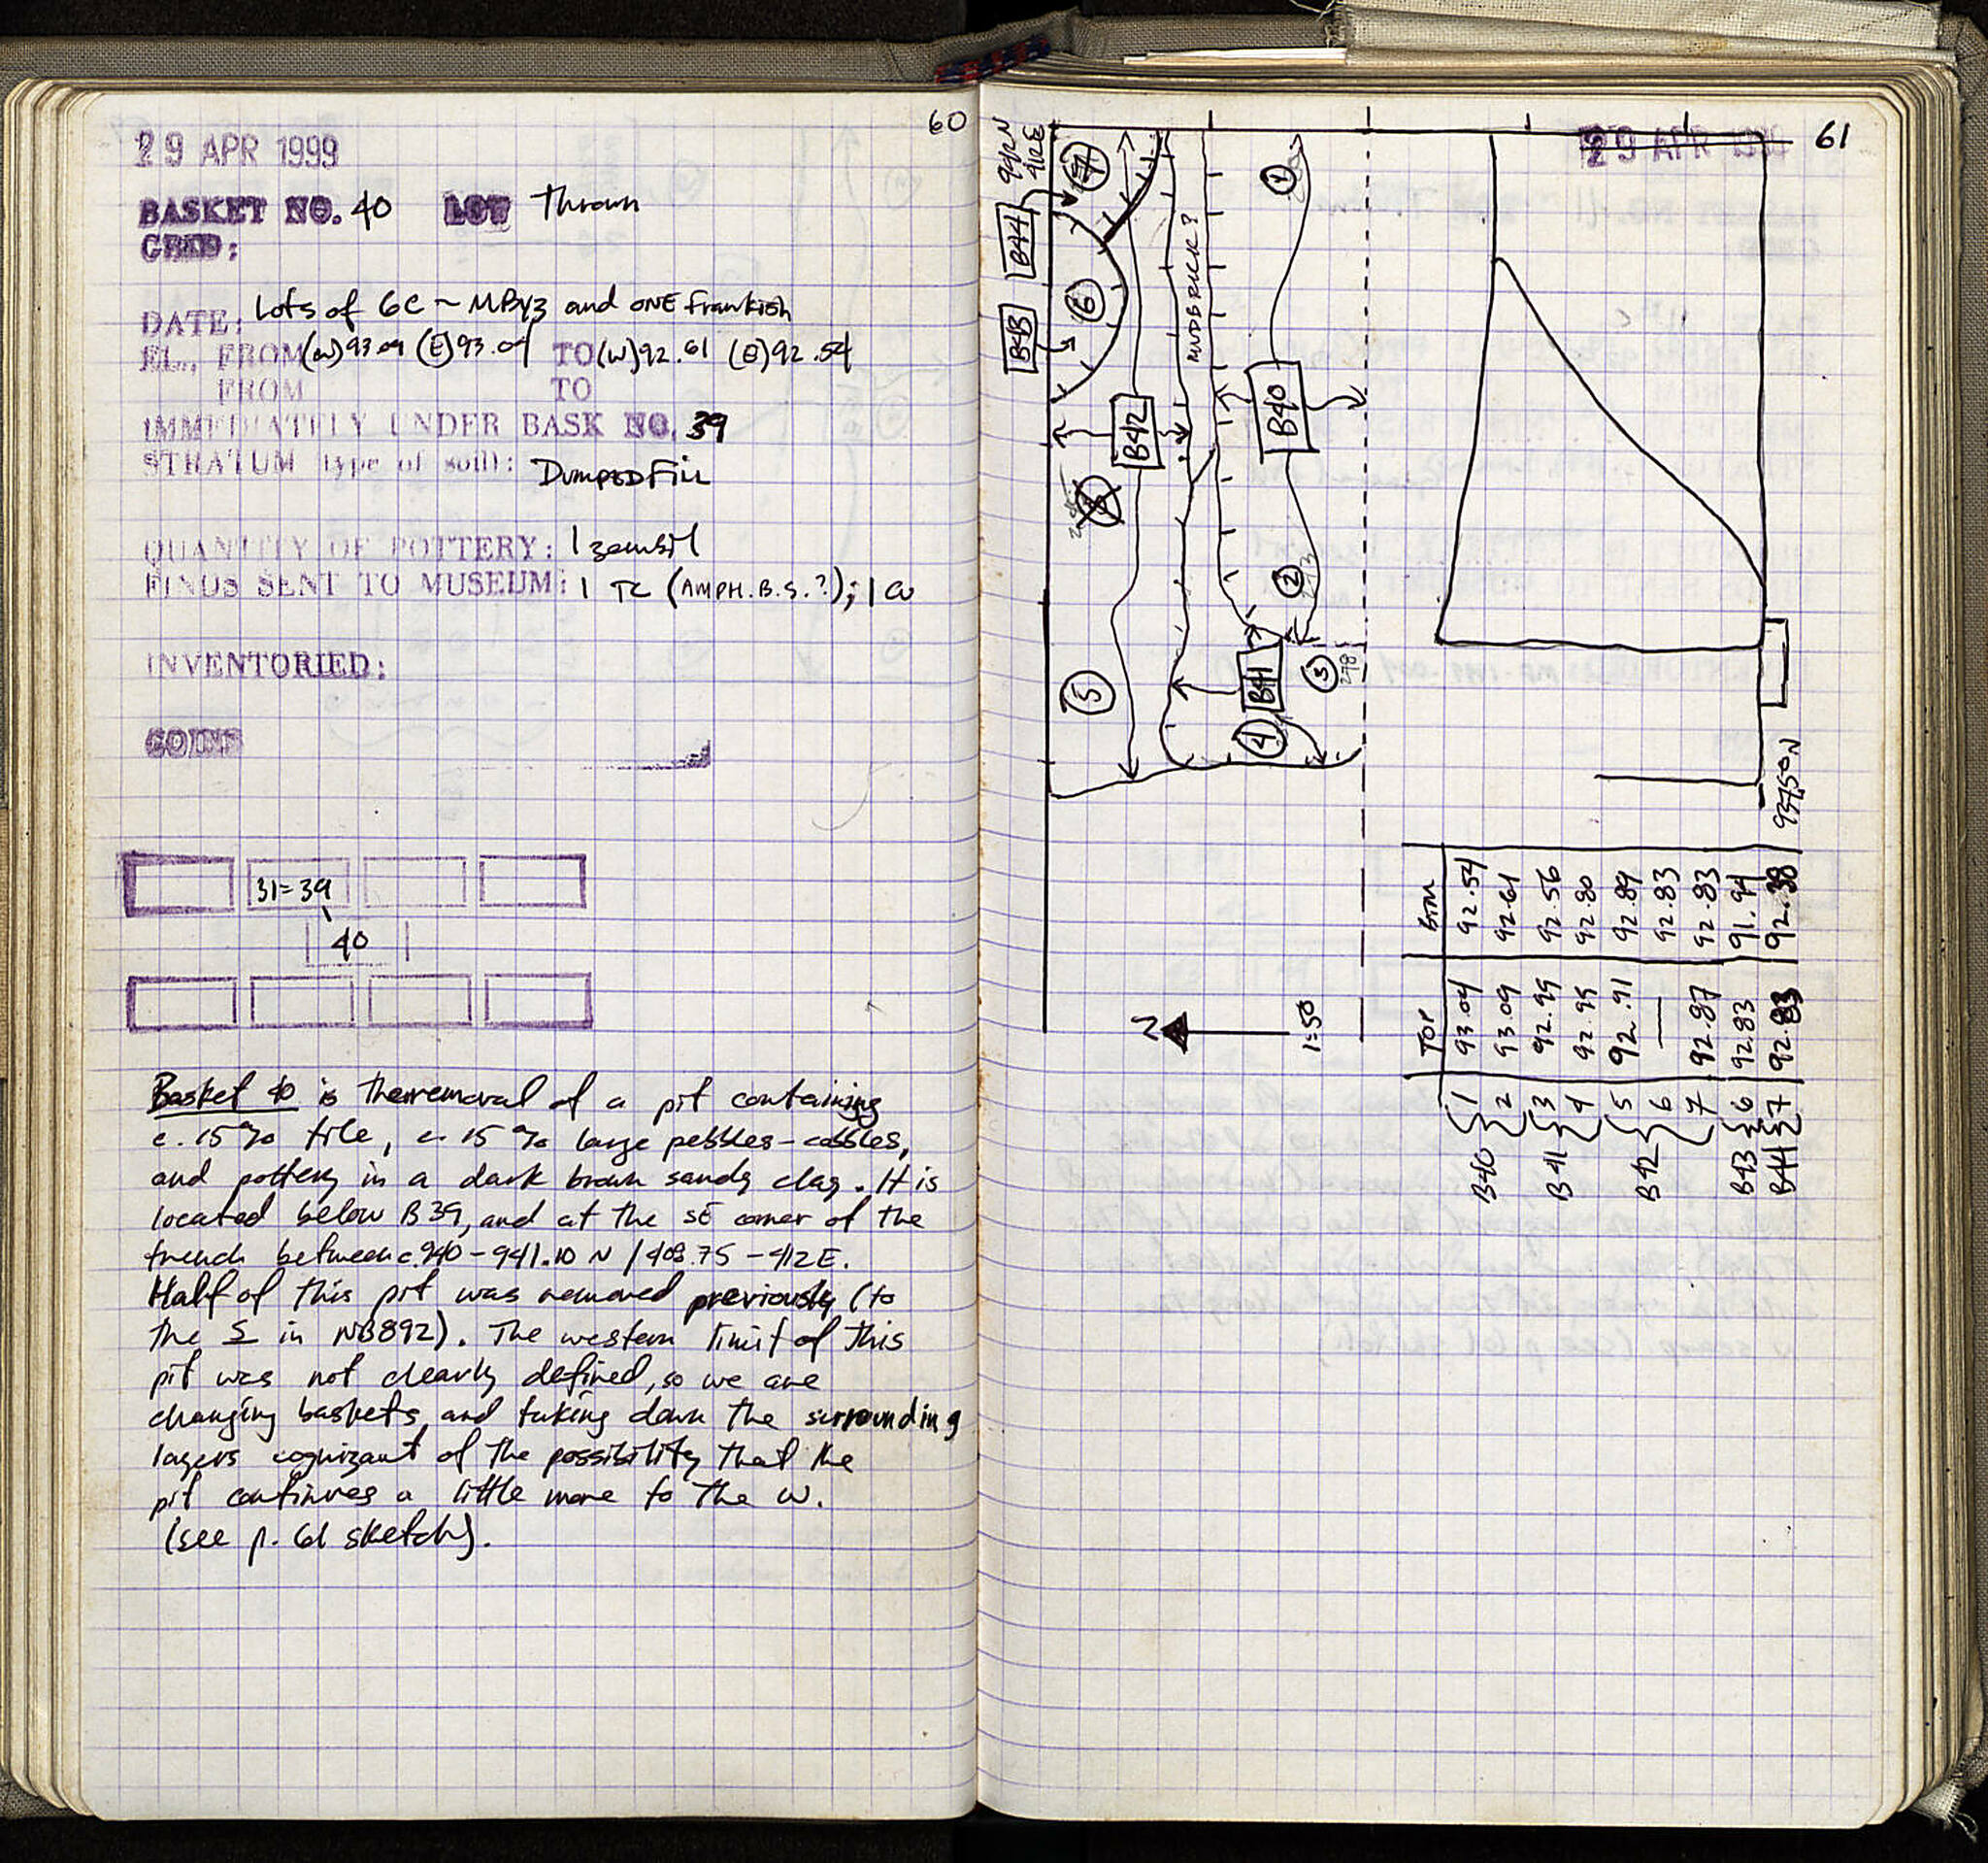 60
29 APR 1999
BASKET NO. 40 LOT Thrown
GRID:
DATE: Lots of 6C ~ MByz and ONE Frankish
EL., FROM (W) 93.09 (E) 93.04 TO (W) 92.61 (E) 92.54
FROM TO
IMMEDIATELY UNDER BASK NO. 39
STRATUM (type of soil): DUMPED FILL
QUANTITY OF POTTERY: 1 zembil
FINDS SENT TO MUSEUM: 1 TC (AMPH. B.S.?); 1 CU
INVENTORIED:
COINS
31=39
40
Basket 40 is the removal of a pit containing
c. 15% tile, c. 15% large pebbles-cobbles,
and pottery in a dark brown sandy clay. It is
located below B39, and at the SE corner of the
trench between c. 940-941.10 N / 408.75-412 E.
Half of this pit was removed previously (to
the S in NB892). The western limit of this
pit was not clearly defined, so we are
changing baskets, and taking down the surrounding
layers cognizant of the possibility that the
pit continues a little more to the W.
(see p. 61 sketch).
61
29 APR
412E
B44
B43
7
6
MUDBRICK?
1
B42
B40
2
5
B41
3
4
937.50 N
N
1:50
TOP BTM
B40 1 93.04 92.54
2 93.09 92.61
B41 3 92.95 92.56
4 92.95 92.80
B42 5 92.91 92.89
6 — 92.83
7 92.87 92.83
B43 6 92.83 91.94
B44 7 92.83 92.38